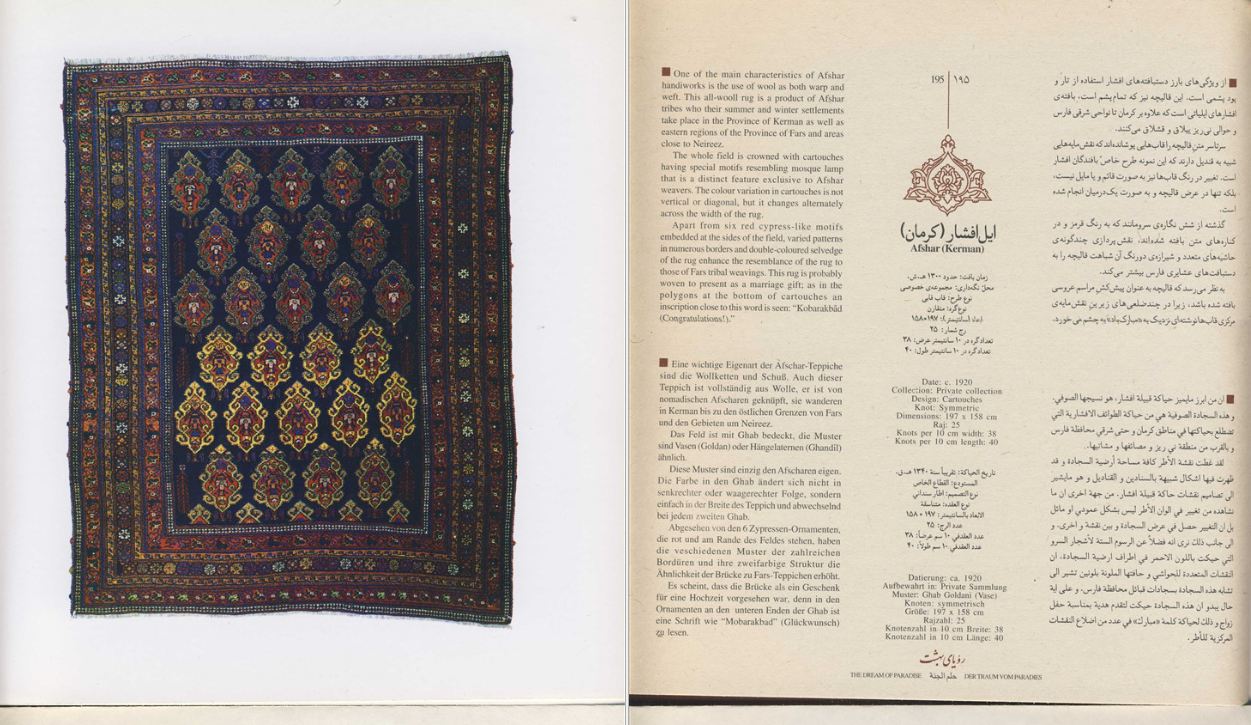 ■ One of the main characteristics of Afshar
handiworks is the use of wool as both warp and
weft. This all-wooll rug is a product of Afshar
tribes who their summer and winter settlements
take place in the Province of Kerman as well as
eastern regions of the Province of Fars and areas
close to Neireez.
The whole field is crowned with cartouches
having special motifs resembling mosque lamp
that is a distinct feature exclusive to Afshar
weavers. The colour variation in cartouches is not
vertical or diagonal, but it changes alternately
across the width of the rug.
Apart from six red cypress-like motifs
embedded at the sides of the field, varied patterns
in numerous borders and double-coloured selvedge
of the rug enhance the resemblance of the rug to
those of Fars tribal weavings. This rug is probably
woven to present as a marriage gift; as in the
polygons at the bottom of cartouches an
inscription close to this word is seen: “Kobarakbâd
(Congratulations!).”
■ Eine wichtige Eigenart der Afschar-Teppiche
sind die Wollketten und Schuß. Auch dieser
Teppich ist vollständig aus Wolle, er ist von
nomadischen Afscharen geknüpft, sie wanderen
in Kerman bis zu den östlichen Grenzen von Fars
und den Gebieten um Neireez.
Das Feld ist mit Ghab bedeckt, die Muster
sind Vasen (Goldan) oder Hängelaternen (Ghandil)
ähnlich.
Diese Muster sind einzig den Afscharen eigen.
Die Farbe in den Ghab ändert sich nicht in
senkrechter oder waagerechter Folge, sondern
einfach in der Breite des Teppich und abwechselnd
bei jedem zweiten Ghab.
Abgesehen von den 6 Zypressen-Ornamenten,
die rot und am Rande des Feldes stehen, haben
die veschiedenen Muster der zahlreichen
Bordüren und ihre zweifarbige Struktur die
Ähnlichkeit der Brücke zu Fars-Teppichen erhöht.
Es scheint, dass die Brücke als ein Geschenk
für eine Hochzeit vorgesehen war, denn in den
Ornamenten an den unteren Enden der Ghab ist
eine Schrift wie “Mobarakbad” (Glückwunsch)
zu lesen.
195 ۱۹۵
ایل افشار (کرمان)
Afshar (Kerman)
زمان بافت: حدود ۱۳۰۰ ه‍.ش.
محل نگه‌داری: مجموعه‌ی خصوصی
نوع طرح: قاب قابی
نوع گره: متقارن
ابعاد (سانتیمتر): ۱۹۷×۱۵۸
رج شمار: ۲۵
تعداد گره در ۱۰ سانتیمتر عرض: ۳۸
تعداد گره در ۱۰ سانتیمتر طول: ۴۰
Date: c. 1920
Collection: Private collection
Design: Cartouches
Knot: Symmetric
Dimensions: 197 x 158 cm
Raj: 25
Knots per 10 cm width: 38
Knots per 10 cm length: 40
تاریخ الحیاکة: تقریباً سنة ۱۳۴۰ ه‍.ق.
المستودع: القطاع الخاص
نوع التصمیم: اطار سندانی
نوع العقدة: متناسقة
الابعاد بالسانتیمتر: ۱۹۷ × ۱۵۸
عدد الرج: ۲۵
عدد العقد فی ۱۰ سم عرضاً: ۳۸
عدد العقد فی ۱۰ سم طولاً: ۴۰
Datierung: ca. 1920
Aufbewahrt in: Private Sammlung
Muster: Ghab Goldani (Vase)
Knoten: symmetrisch
Größe: 197 x 158 cm
Rajzahl: 25
Knotenzahl in 10 cm Breite: 38
Knotenzahl in 10 cm Länge: 40
رؤیای بهشت
THE DREAM OF PARADISE حلم الجنة DER TRAUM VOM PARADIES
■ از ویژگی‌های بارز دستبافته‌های افشار استفاده از تار و
پود پشمی است. این قالیچه نیز که تمام پشم است، بافته‌ی
افشارهای ایلیاتی است که علاوه بر کرمان تا نواحی شرقی فارس
و حوالی نی‌ریز ییلاق و قشلاق می‌کنند.
سرتاسر متن قالیچه را قاب‌هایی پوشانده‌اند که نقش‌مایه‌هایی
شبیه به قندیل دارند که این نمونه طرح خاص بافندگان افشار
است. تغییر در رنگ قاب‌ها نیز به صورت قائم و یا مایل نیست،
بلکه تنها در عرض قالیچه و به صورت یک‌درمیان انجام شده
است.
گذشته از شش نگاره‌ی سرومانند که به رنگ قرمز و در
کناره‌های متن بافته شده‌اند، نقش‌پردازی چندگونه‌ی
حاشیه‌های متعدد و شیرازه‌ی دورنگ آن شباهت قالیچه را به
دستبافت‌های عشایری فارس بیشتر می‌کند.
به نظر می‌رسد که قالیچه به عنوان پیش‌کش مراسم عروسی
بافته شده باشد، زیرا در چندضلعی‌های زیرین نقش‌مایه‌ی
مرکزی قاب‌ها نوشته‌ای نزدیک به «مبارک‌باد» به چشم می‌خورد.
■ ان من ابرز مایمیز حیاکة قبیلة افشار، هو نسیجها الصوفی.
و هذه السجادة الصوفیة هی من حیاکة الطوائف الافشاریة التی
تضطلع بحیاکتها فی مناطق کرمان و حتی شرقی محافظة فارس
و بالقرب من منطقة نی ریز و مصائفها و مشاتیها.
لقد غطت نقشة الأطر کافة مساحة أرضیة السجادة و قد
ظهرت فیها اشکال شبیهة بالسنادین و القنادیل و هو مایشیر
الی تصامیم نقشات حاکة قبیلة افشار. من جهة اخری ان ما
نشاهده من تغییر فی الوان الأطر لیس بشکل عمودی او مائل
بل ان التغییر حصل فی عرض السجادة و بین نقشة و اخری. و
الی جانب ذلک نری انه فضلاً عن الرسوم الستة لأشجار السرو
التی حیکت باللون الاحمر فی اطراف ارضیة السجادة، ان
النقشات المتعددة للحواشی و حافتها الملونة بلونین تشیر الی
تشابه هذه السجادة بسجادات قبائل محافظة فارس. و علی ایة
حال یبدو ان هذه السجادة حیکت لتقدم هدیة بمناسبة حفل
زواج و ذلک لحیاکة کلمة «مبارک» فی عدد من اضلاع النقشات
المرکزیة للأطر.